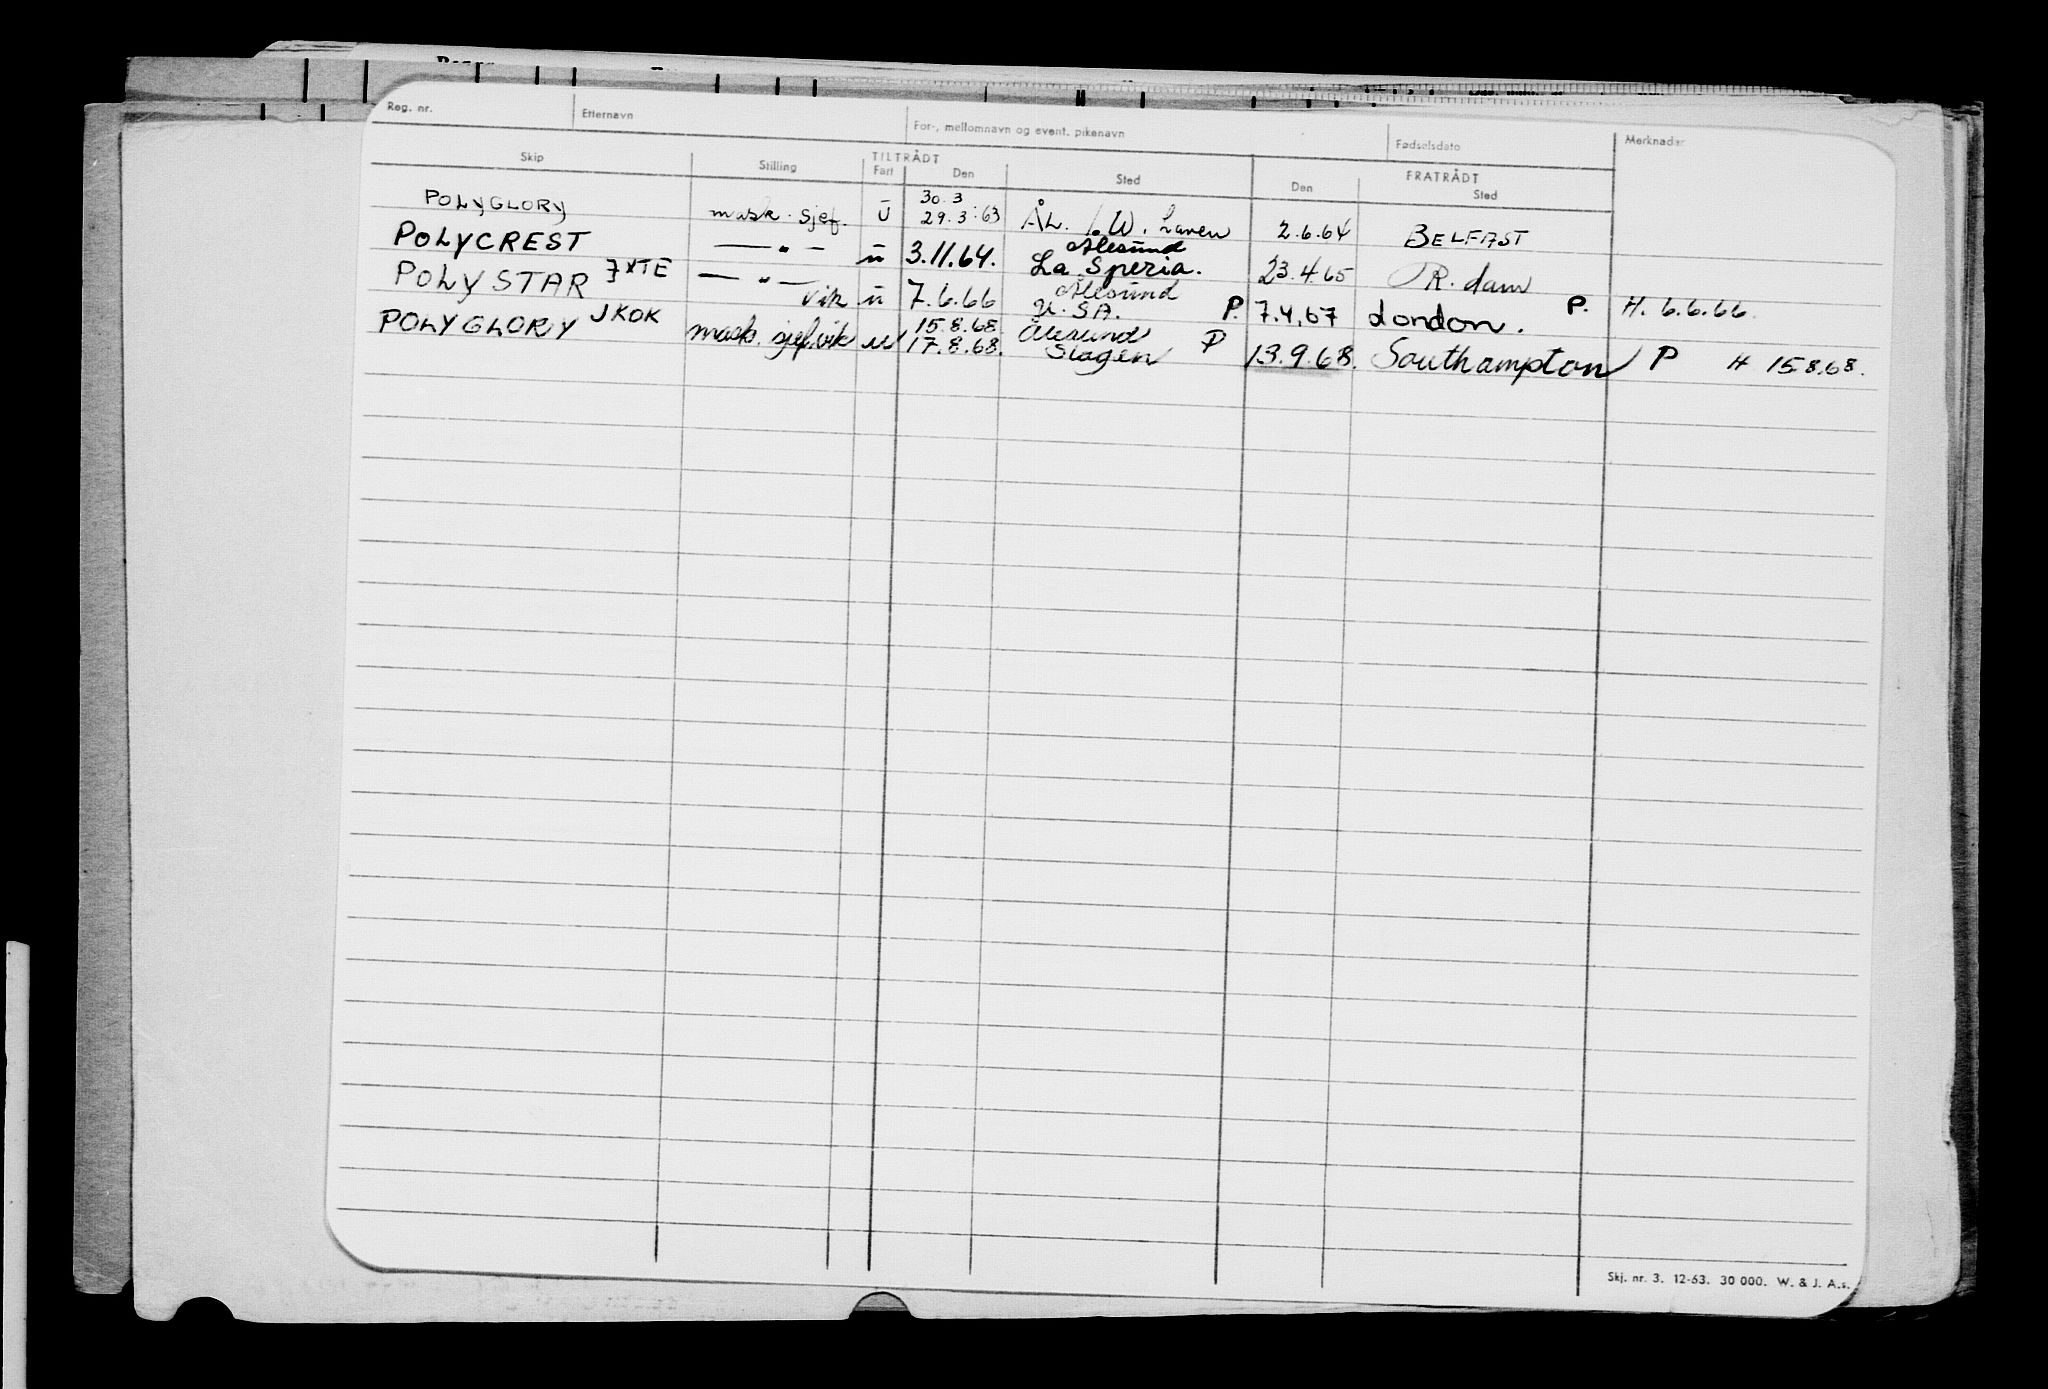 Reg. nr. Etternavn For-, mellomnavn og event. pikenavn Fødselsdato Merknader
Skip Stilling TILTRÅDT FRATRÅDT
Fart Den Sted Den Sted
POLYGLORY mask. sjef. U 30.3 29.3.63 ÅL. / W. haven 2.6.64 BELFAST
POLYCREST — " — u 3.11.64. Ålesund La Spezia. 23.4.65 R.dam
POLYSTAR JXTE — " — vik u 7.6.66 Ålesund U.SA. P. 7.4.67 London. P. H. 6.6.66.
POLYGLORY JKOK mask. sjef. vik u 15.8.68. 17.8.68. Ålesund Slagen P 13.9.68. Southampton P H 15.8.68.
Skj. nr. 3. 12-63. 30 000. W. & J. A.s.